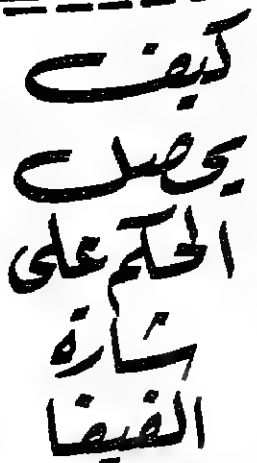 كيف
يحصل
الحكم على
شارة
الفيفا